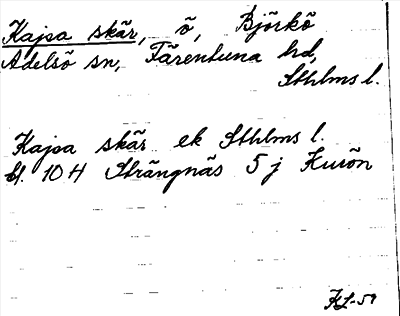 Kajsa skär, ö, Björkö
Adelsö sn, Färentuna hd,
Sthlms l.
Kajsa skär ek Sthlms l.
bl. 10 H Strängnäs 5 j Kurön
KL-59